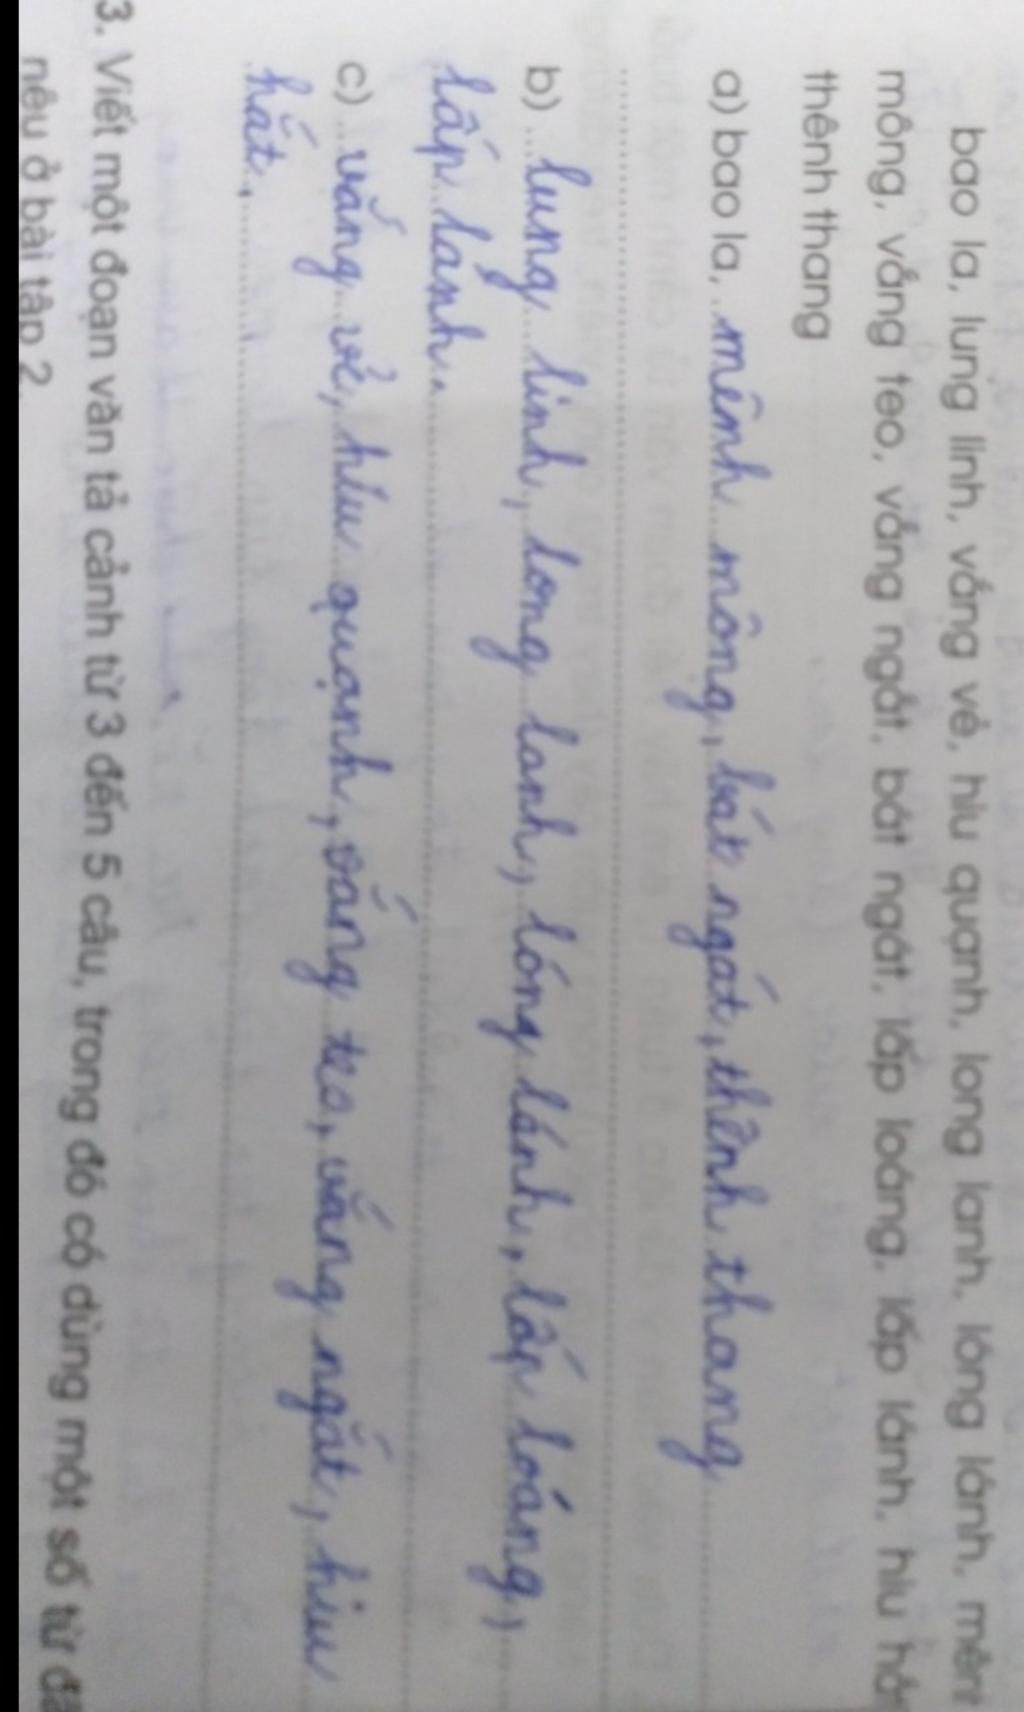 bao la, lung linh, vắng vẻ, hiu quạnh, long lanh, lóng lánh, mênh
mông, vắng teo, vắng ngắt, bát ngát, lấp loáng, lấp lánh, hiu hắt
thênh thang
a) bao la, mênh mông, bát ngát, thênh thang
b) lung linh, long lanh, lóng lánh, lấp loáng,
lấp lánh.
c) vắng vẻ, hiu quạnh, vắng teo, vắng ngắt, hiu
hắt.
3. Viết một đoạn văn tả cảnh từ 3 đến 5 câu, trong đó có dùng một số từ đã
nêu ở bài tập 2.